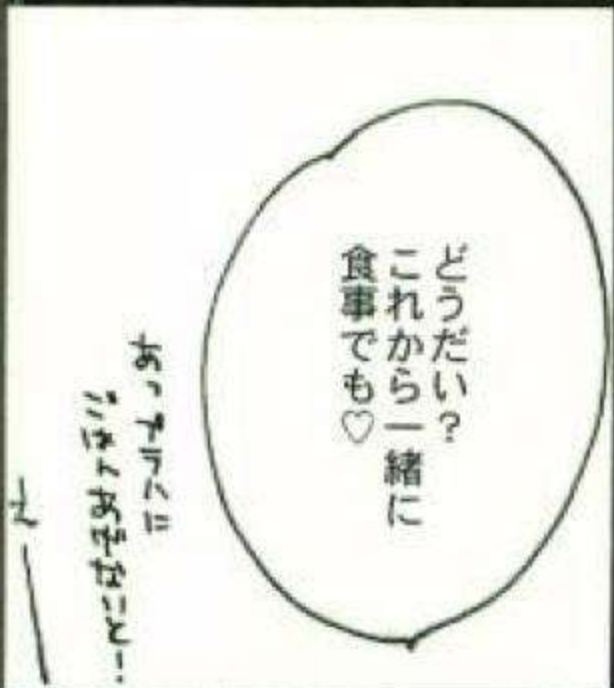 どうだい？
これから一緒に
食事でも♡
あっプラハに
ごはんあげないと…
え——